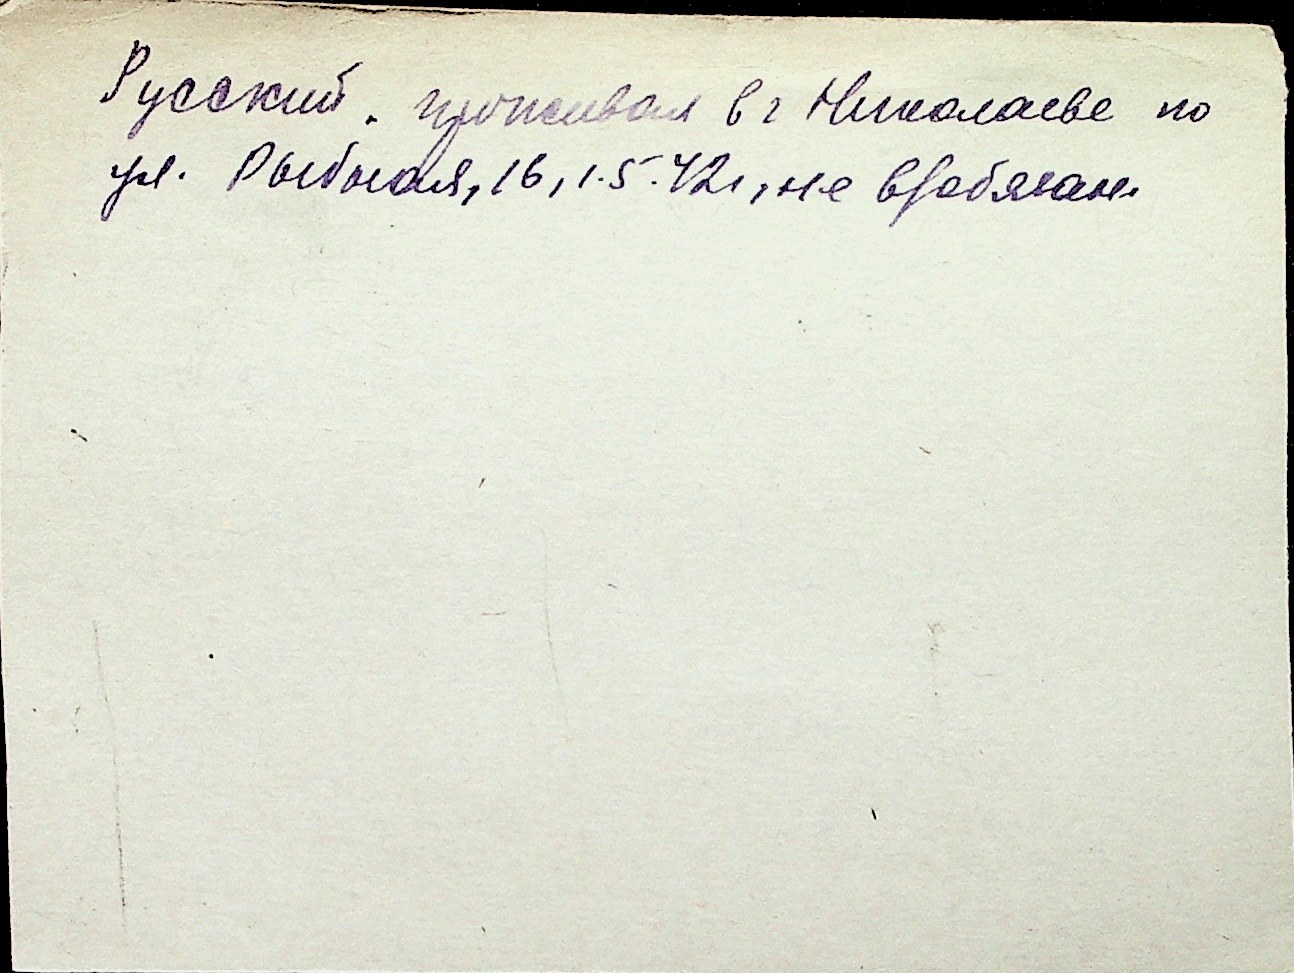 Русский. проживал в г Николаеве по
ул. Рыбная, 16, 1.5.42г, не